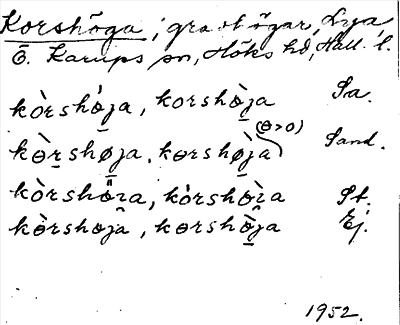 Korshöga, gravhögar, Lya,
Ö. Karups sn, Höks hd, Hall. l.
kòrshò̱ja, korshò̱ja Sa.
(ɵ>o)
kɵ̀r̲shø̱ja, kɵrshø̱̀ja Sand.
kòrshöra, kòrshɵ̀ra St.
kɵ̀rshɵja, kɵrshɵ̱̀ja Ej.
1952.